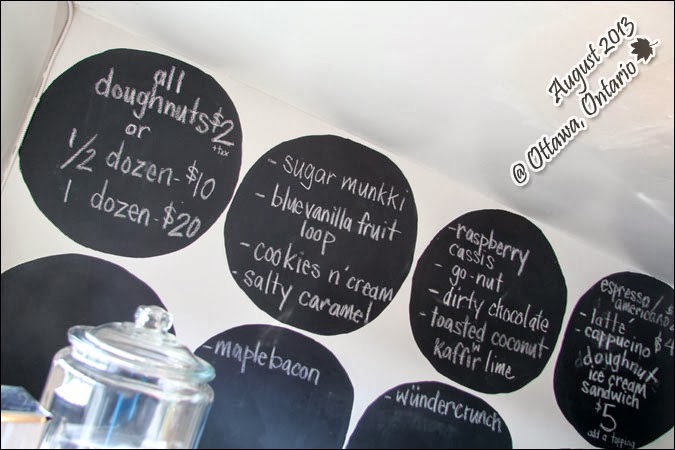 August 2013
@ Ottawa, Ontario
all
doughnuts $2
+tax
or
1/2 dozen - $10
1 dozen - $20
- sugar munkki
- blue vanilla fruit
loop
- cookies n' cream
- salty caramel
- raspberry
cassis
- go-nut
- dirty chocolate
- toasted coconut
w
Kaffir lime
espresso/
americano
- latté
- cappucino $4
doughnut
ice cream
sandwich
$5
add a topping
- maple bacon
- wündercrunch